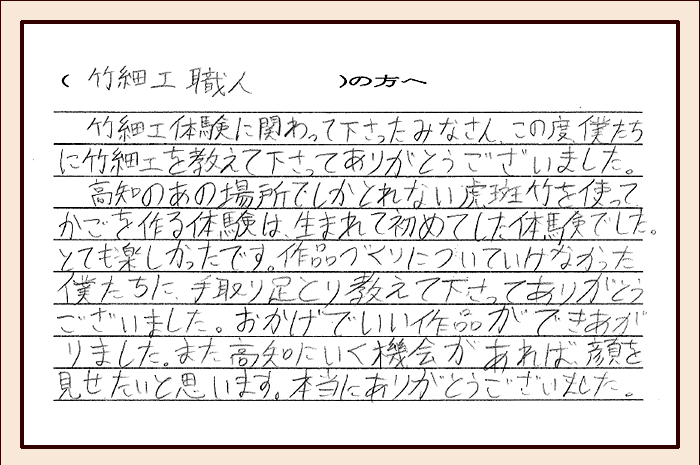 ( 竹細工職人 )の方へ
竹細工体験に関わって下さったみなさん、この度、僕たち
に竹細工を教えて下さってありがとうございました。
高知のあの場所でしかとれない虎斑竹を使って
かごを作る体験は、生まれて初めてした体験でした。
とても楽しかったです。作品づくりについていけなかった
僕たちに、手取り足とり教えて下さってありがとう
ございました。おかげでいい作品ができあが
りました。また高知にいく機会があれば、顔を
見せたいと思います。本当にありがとうございました。